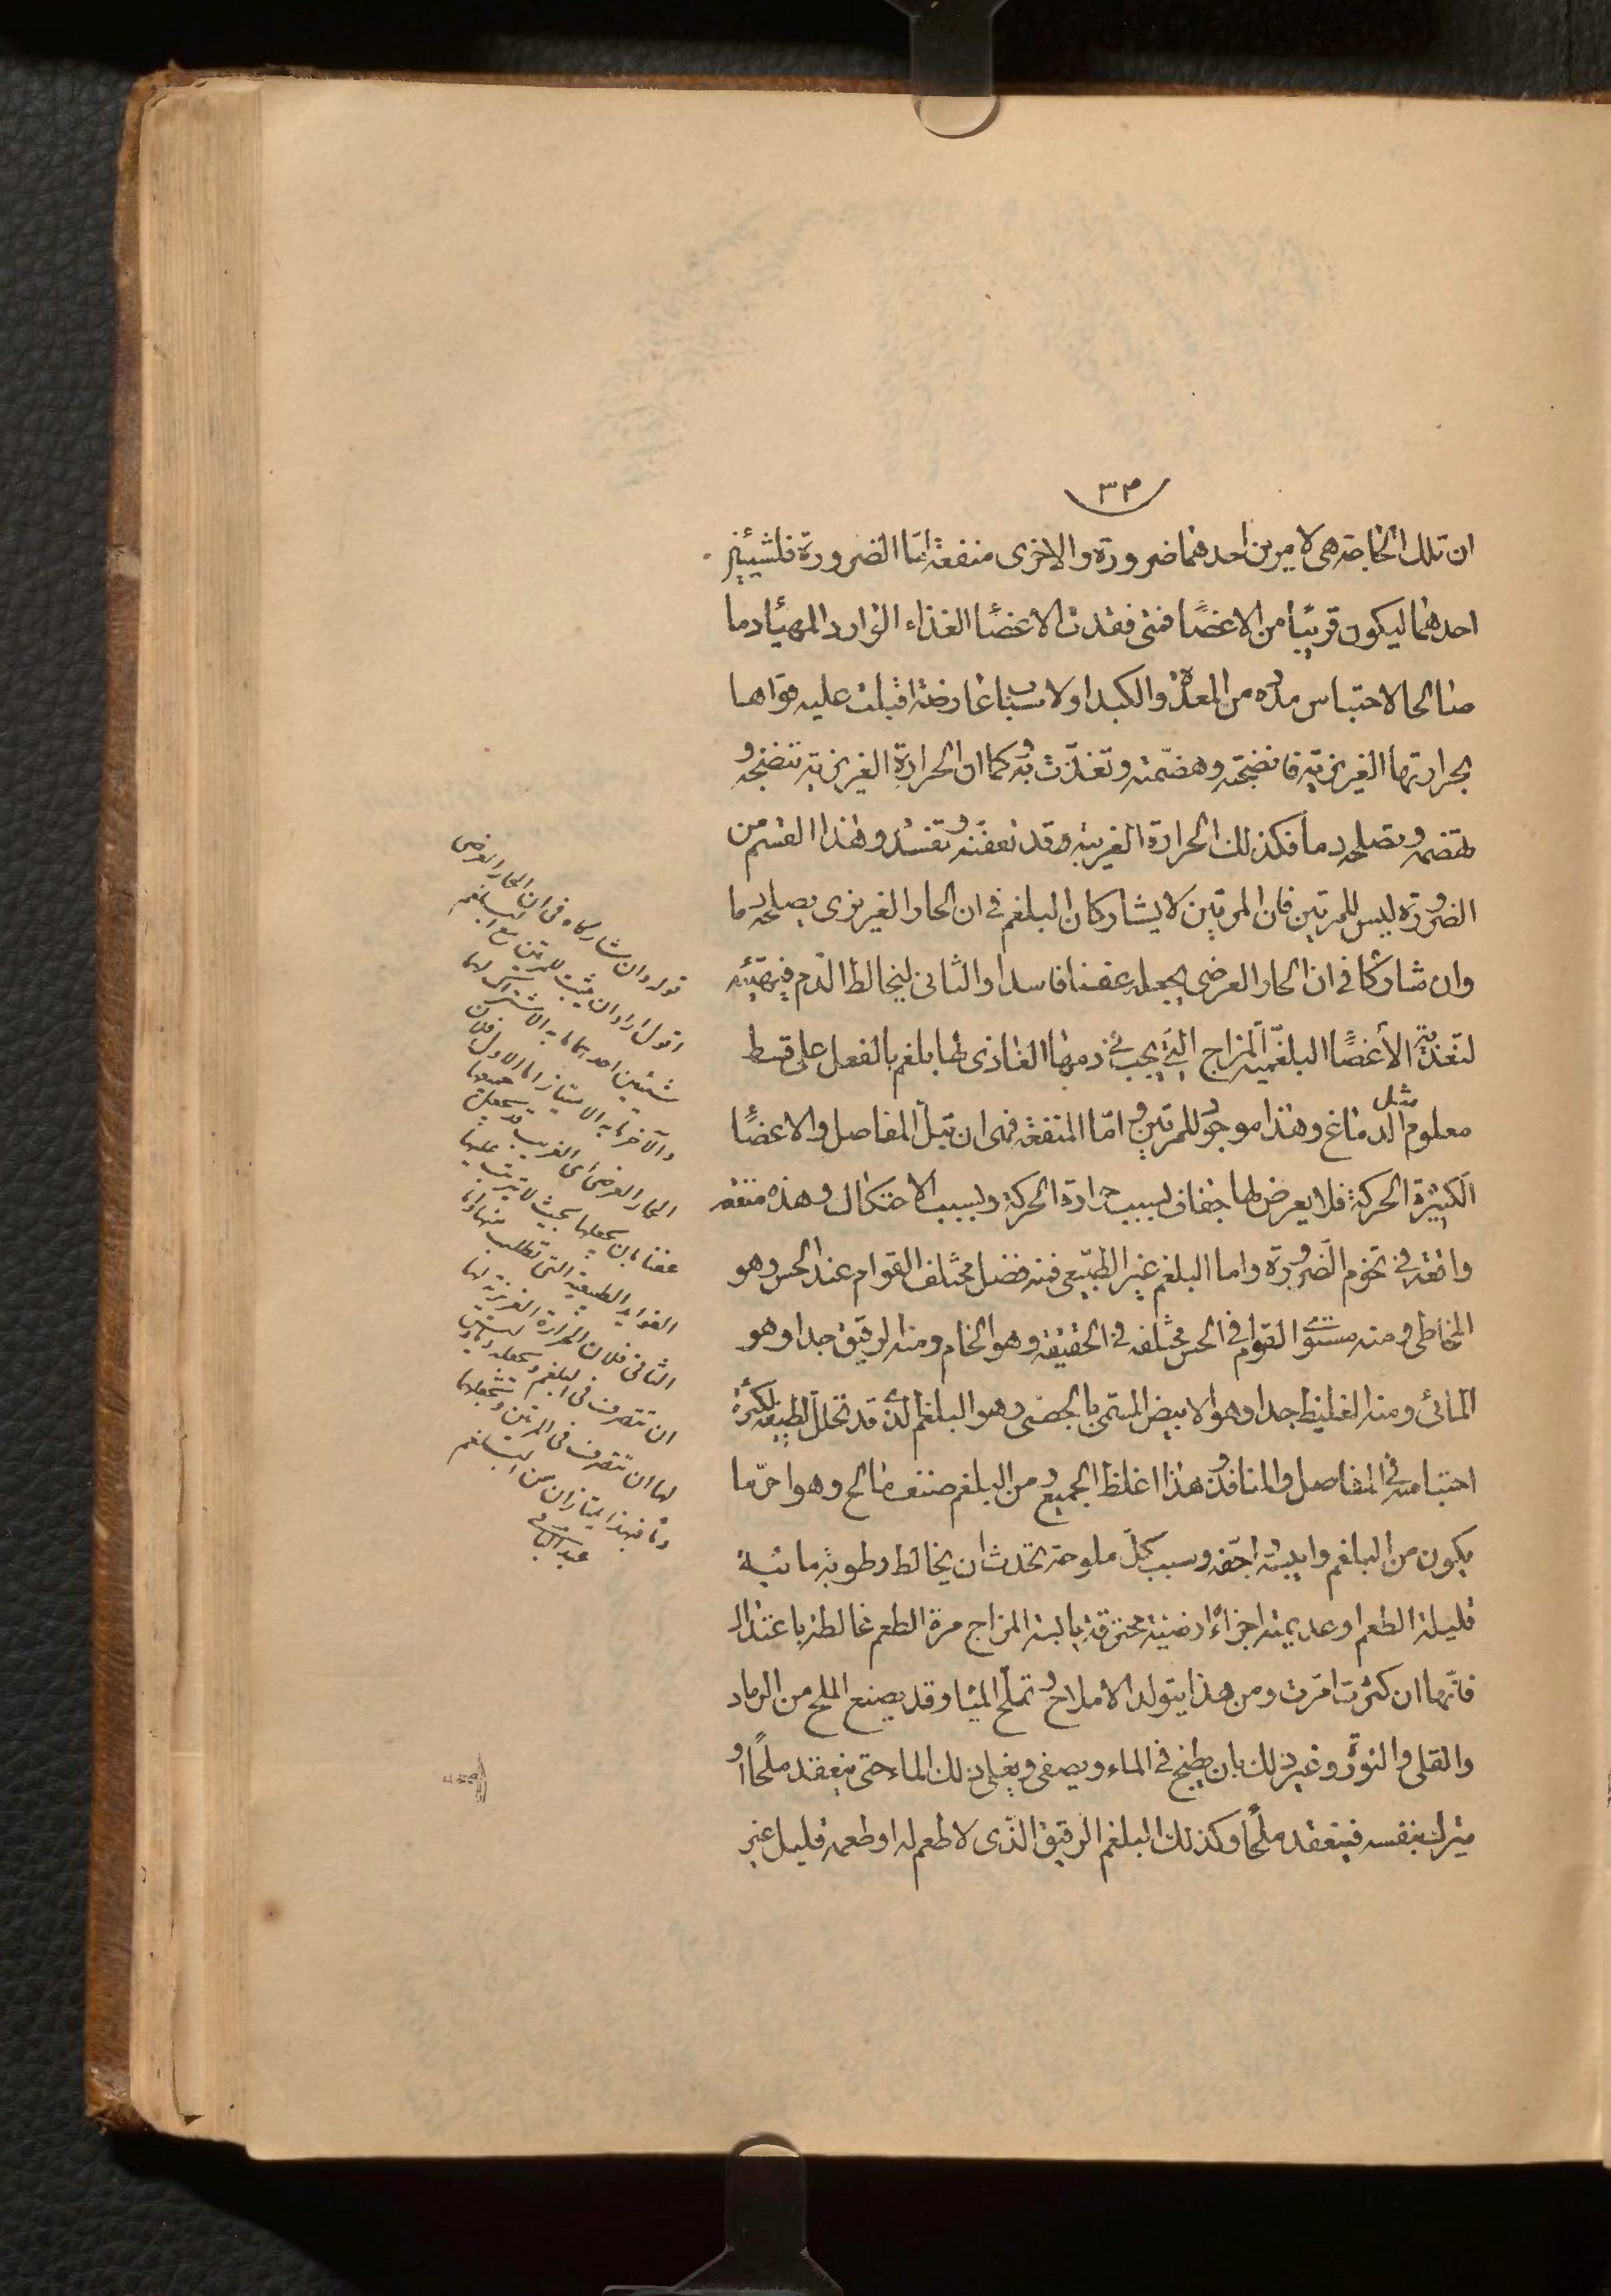 ٣٣
ان تلك الحاجة هى لامرين احدهما ضرورة والاخرى منفعة امّا الضرورة فلشيئين
احدهما ليكون قريبًا من الاعضا فمتى فقدت الاعضا الغذاء الوارد المهيأ دما
صالحا لاحتباس مدده من المعدة والكبد او لاسباب عارضة اقبلت عليه قواها
بحرارتها الغريزية فانضجته وهضمته وتغذّت به وكما ان الحرارة الغريزية تنضجه و
تهضمه وتصلحه دما فكذلك الحرارة الغريبة وقد تعفنه وتفسده وهذا القسم من
الضرورة ليس للمرتين فان المرتين لا يشاركان البلغم فى ان الحار الغريزى يصلحه دما
وان شاركا فى ان الحار العرضى يجعله عفنا فاسدا والثانى ليخالط الدم فيهيّئه
لتغذية الأعضا البلغميّة المزاج التى يجب فى دمها الغاذى لها بلغم بالفعل على قسط
معلوم مثل الدماغ وهذا موجود للمرتين وامّا المنفعة فهى ان تبلّ المفاصل والاعضا
الكثيرة الحركة فلا يعرض لها جفاف بسبب حرارة الحركة وبسبب الاحتكاك وهذه منفعة
واقعة فى تخوم الضرورة واما البلغم غير الطبيعى فمنه فضل مختلف القوام عند الحس وهو
المخاطى ومنه مستوى القوام فى الحس مختلفه فى الحقيقة وهو الخام ومنه الرقيق جدا وهو
المائى ومنه الغليظ جدا وهو الابيض المسمى بالجصى وهو البلغم الذى قد تحلل لطيفه لكثرة
احتباسه فى المفاصل والمنافذ وهذا اغلظ الجميع ومن البلغم صنف مالح وهو احرّ ما
يكون من البلغم وايبسه واجفه وسبب كلّ ملوحة تحدث ان يخالط رطوبة مائية
قليلة الطعم او عديمته اجزاءٌ ارضية محترقة يابسة المزاج مرة الطعم مخالطة باعتدال
فانّها ان كثرت امرّت ومن هذا يتولد الاملاح وتملح المياه وقد يصنع الملح من الرماد
والقلى والنورة وغير ذلك بان يطبخ فى الماء ويصفى ويغلى ذلك الماء حتى ينعقد ملحًا او
يترك بنفسه فينعقد ملحًا وكذلك البلغم الرقيق الّذى لا طعم له او طعمه قليل غير
قوله وان شاركاه فى ان الحار العرضى
اقول اراد ان يثبت للمرتين مع البلغم
شيئين احدهما ما به الاشتراك
والآخر ما به الامتياز اما الاول فلان
الحار العرضى اى الغريب قد يجعل جميعها
عفنا بان يجعلها بحيث لا يترتب عليها
الفوايد الطبيعية التى تطلب منها واما
الثانى فلان الحرارة الغريزية لها
ان تتصرف فى البلغم وتجعله دما وليس
لها ان تتصرف فى المرتين وتجعلهما
دما فبهذا يمتازان من البلغم
عبد الباقى